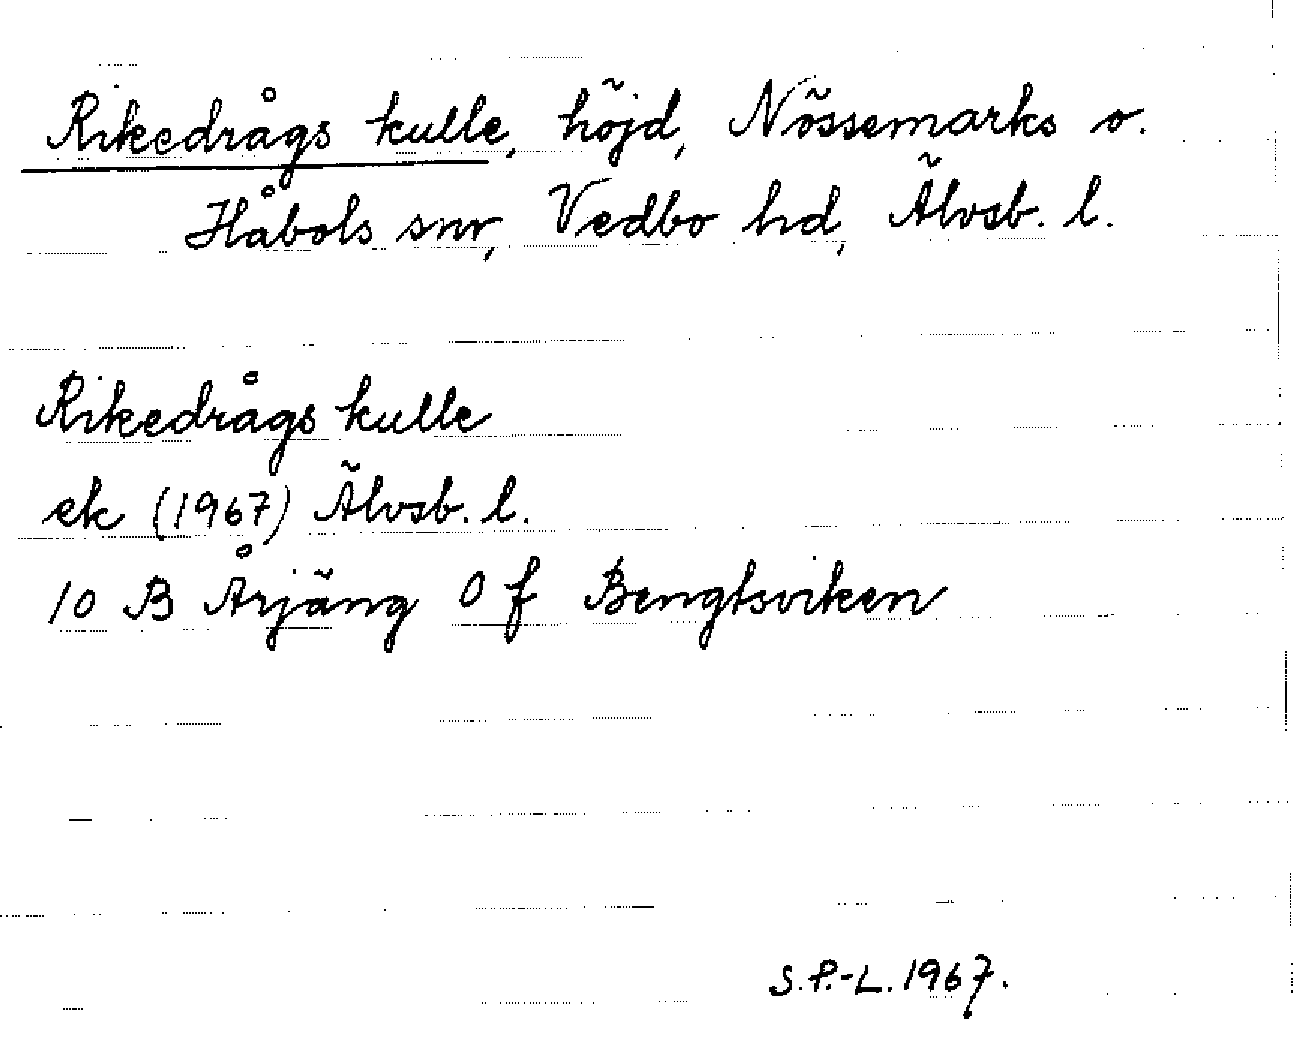 Rikedrågs kulle, höjd, Nössemarks o.
Håbols snr, Vedbo hd, Älvsb. l.
Rikedrågs kulle
ek (1967) Älvsb. l.
10 B Årjäng 0 f Bengtsviken
S.P.-L. 1967.